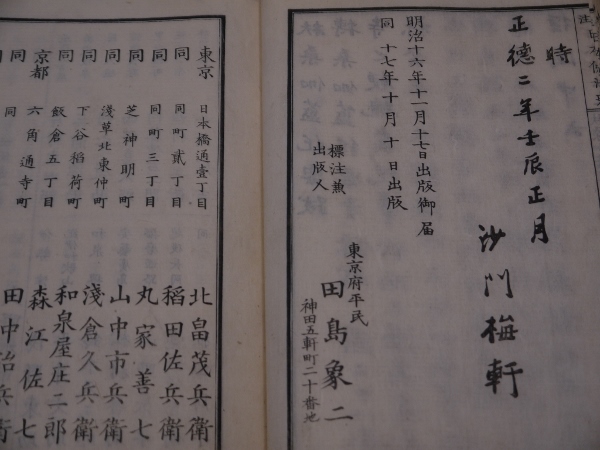 時
正徳二年壬辰正月
沙門梅軒
明治十六年十一月十七日出版御届
同十七年十月十日出版
標注兼
出版人
東京府平民
田島象二
神田五軒町二十番地
東京 日本橋通壹丁目 北畠茂兵衛
同 同町貳丁目 稻田佐兵衛
同 同町三丁目 丸家善七
同 芝神明町 山中市兵衛
同 淺草北東仲町 淺倉久兵衛
同 下谷稻荷町 和泉屋庄二郎
同 飯倉五丁目 森江佐七
京都 六角通寺町 田中治兵衛